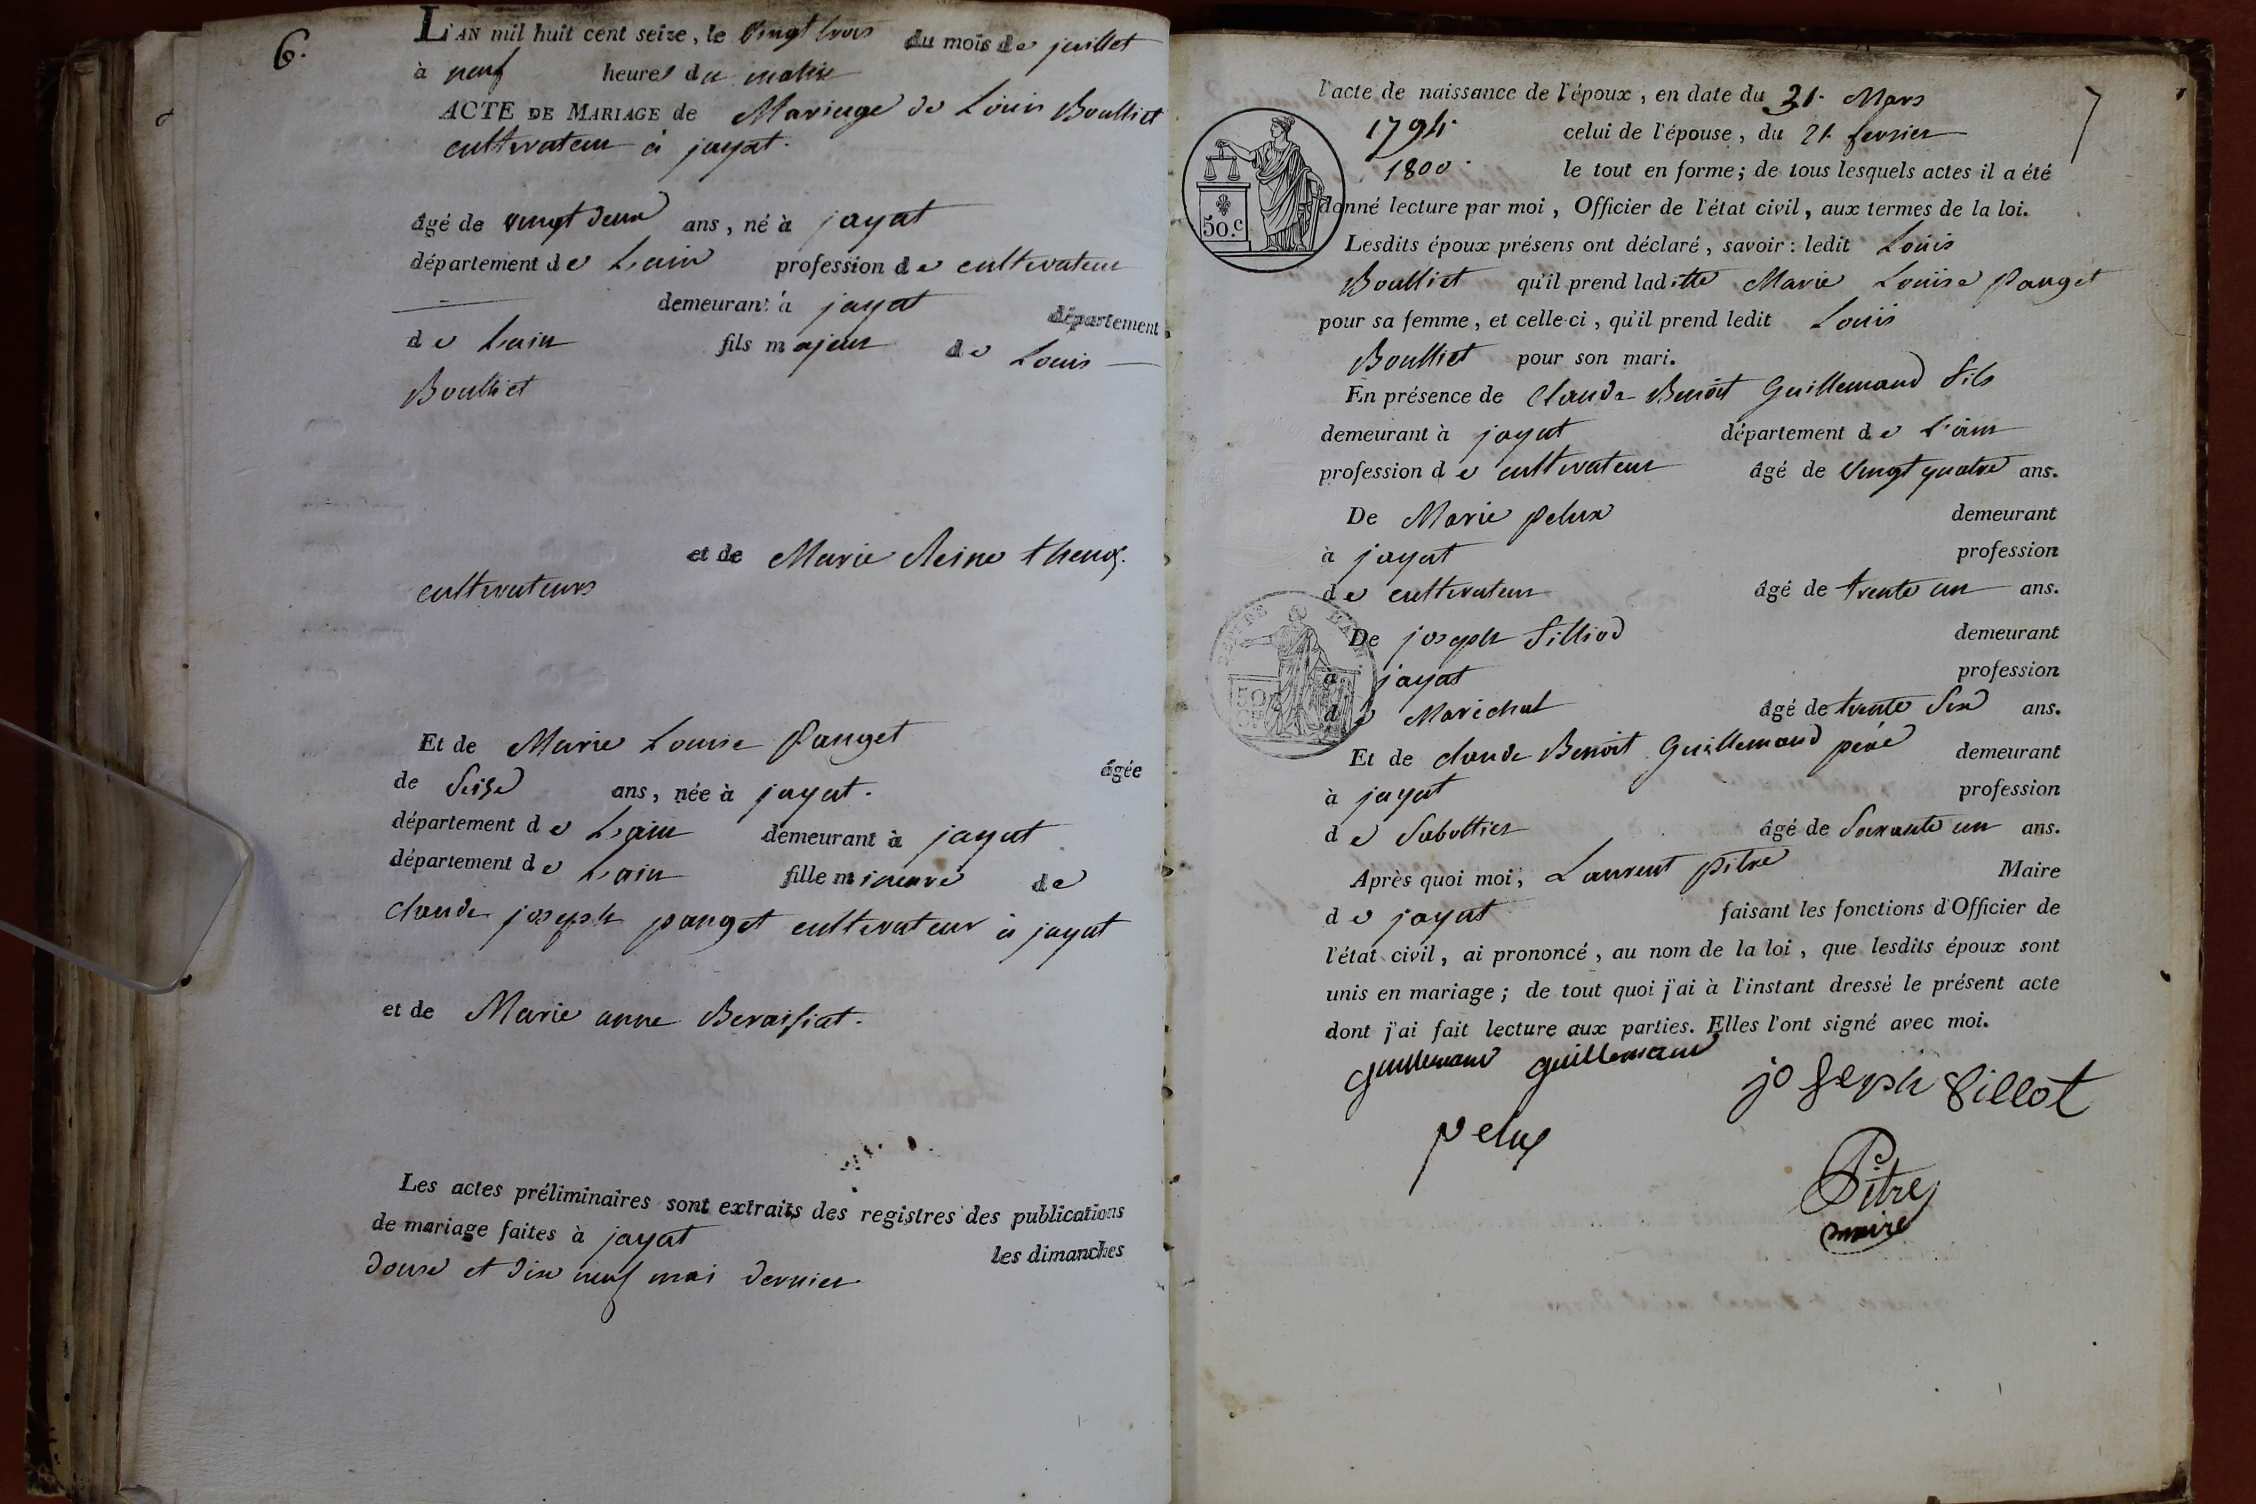 6.
L'AN mil huit cent seize, le vingt trois du mois de juillet
à neuf heures du matin
ACTE DE MARIAGE de Mariage de Louis Boulliet
cultivateur à jayat.
âgé de vingt deux ans, né à jayat
département de Lain profession de cultivateur
demeurant à jayat département
de Lain fils majeur de Louis
Boulliet
et de Marie Reine
cultivateurs
Et de Marie Louise Panget
âgée
de Seise ans, née à jayat.
département de Lain demeurant à jayat
département de Lain fille mineure de
claude joseph panget cultivateur à jayat
et de Marie anne Beraissiat.
Les actes préliminaires sont extraits des registres des publications
de mariage faites à jayat les dimanches
douse et dix neuf mai dernier
7
l'acte de naissance de l'époux, en date du 31. Mars
1794. celui de l'épouse, du 21. fevrier
1800. le tout en forme; de tous lesquels actes il a été
donné lecture par moi, Officier de l'état civil, aux termes de la loi.
50.c
Lesdits époux présens ont déclaré, savoir: ledit Louis
Boulliet qu'il prend laditte Marie Louise Panget
pour sa femme, et celle-ci, qu'il prend ledit Louis
Boulliet pour son mari.
En présence de Claude Benoit Guillemaud fils
demeurant à jayat département de l'ain
profession de cultivateur âgé de vingt quatre ans.
De Marie pelux demeurant
à jayat profession
de cultivateur âgé de trente un ans.
De joseph Silliod demeurant
à jayat profession
de Maréchal âgé de trente Six ans.
Et de claude Benoit Guillemaud père demeurant
à jayat profession
de Sabottier âgé de Soixante un ans.
Après quoi moi, Laurent pitre Maire
de jayat faisant les fonctions d'Officier de
l'état civil, ai prononcé, au nom de la loi, que lesdits époux sont
unis en mariage; de tout quoi j'ai à l'instant dressé le présent acte
dont j'ai fait lecture aux parties. Elles l'ont signé avec moi.
guillemaud guillemaud joseph Sillot
pelux
Pitre
maire